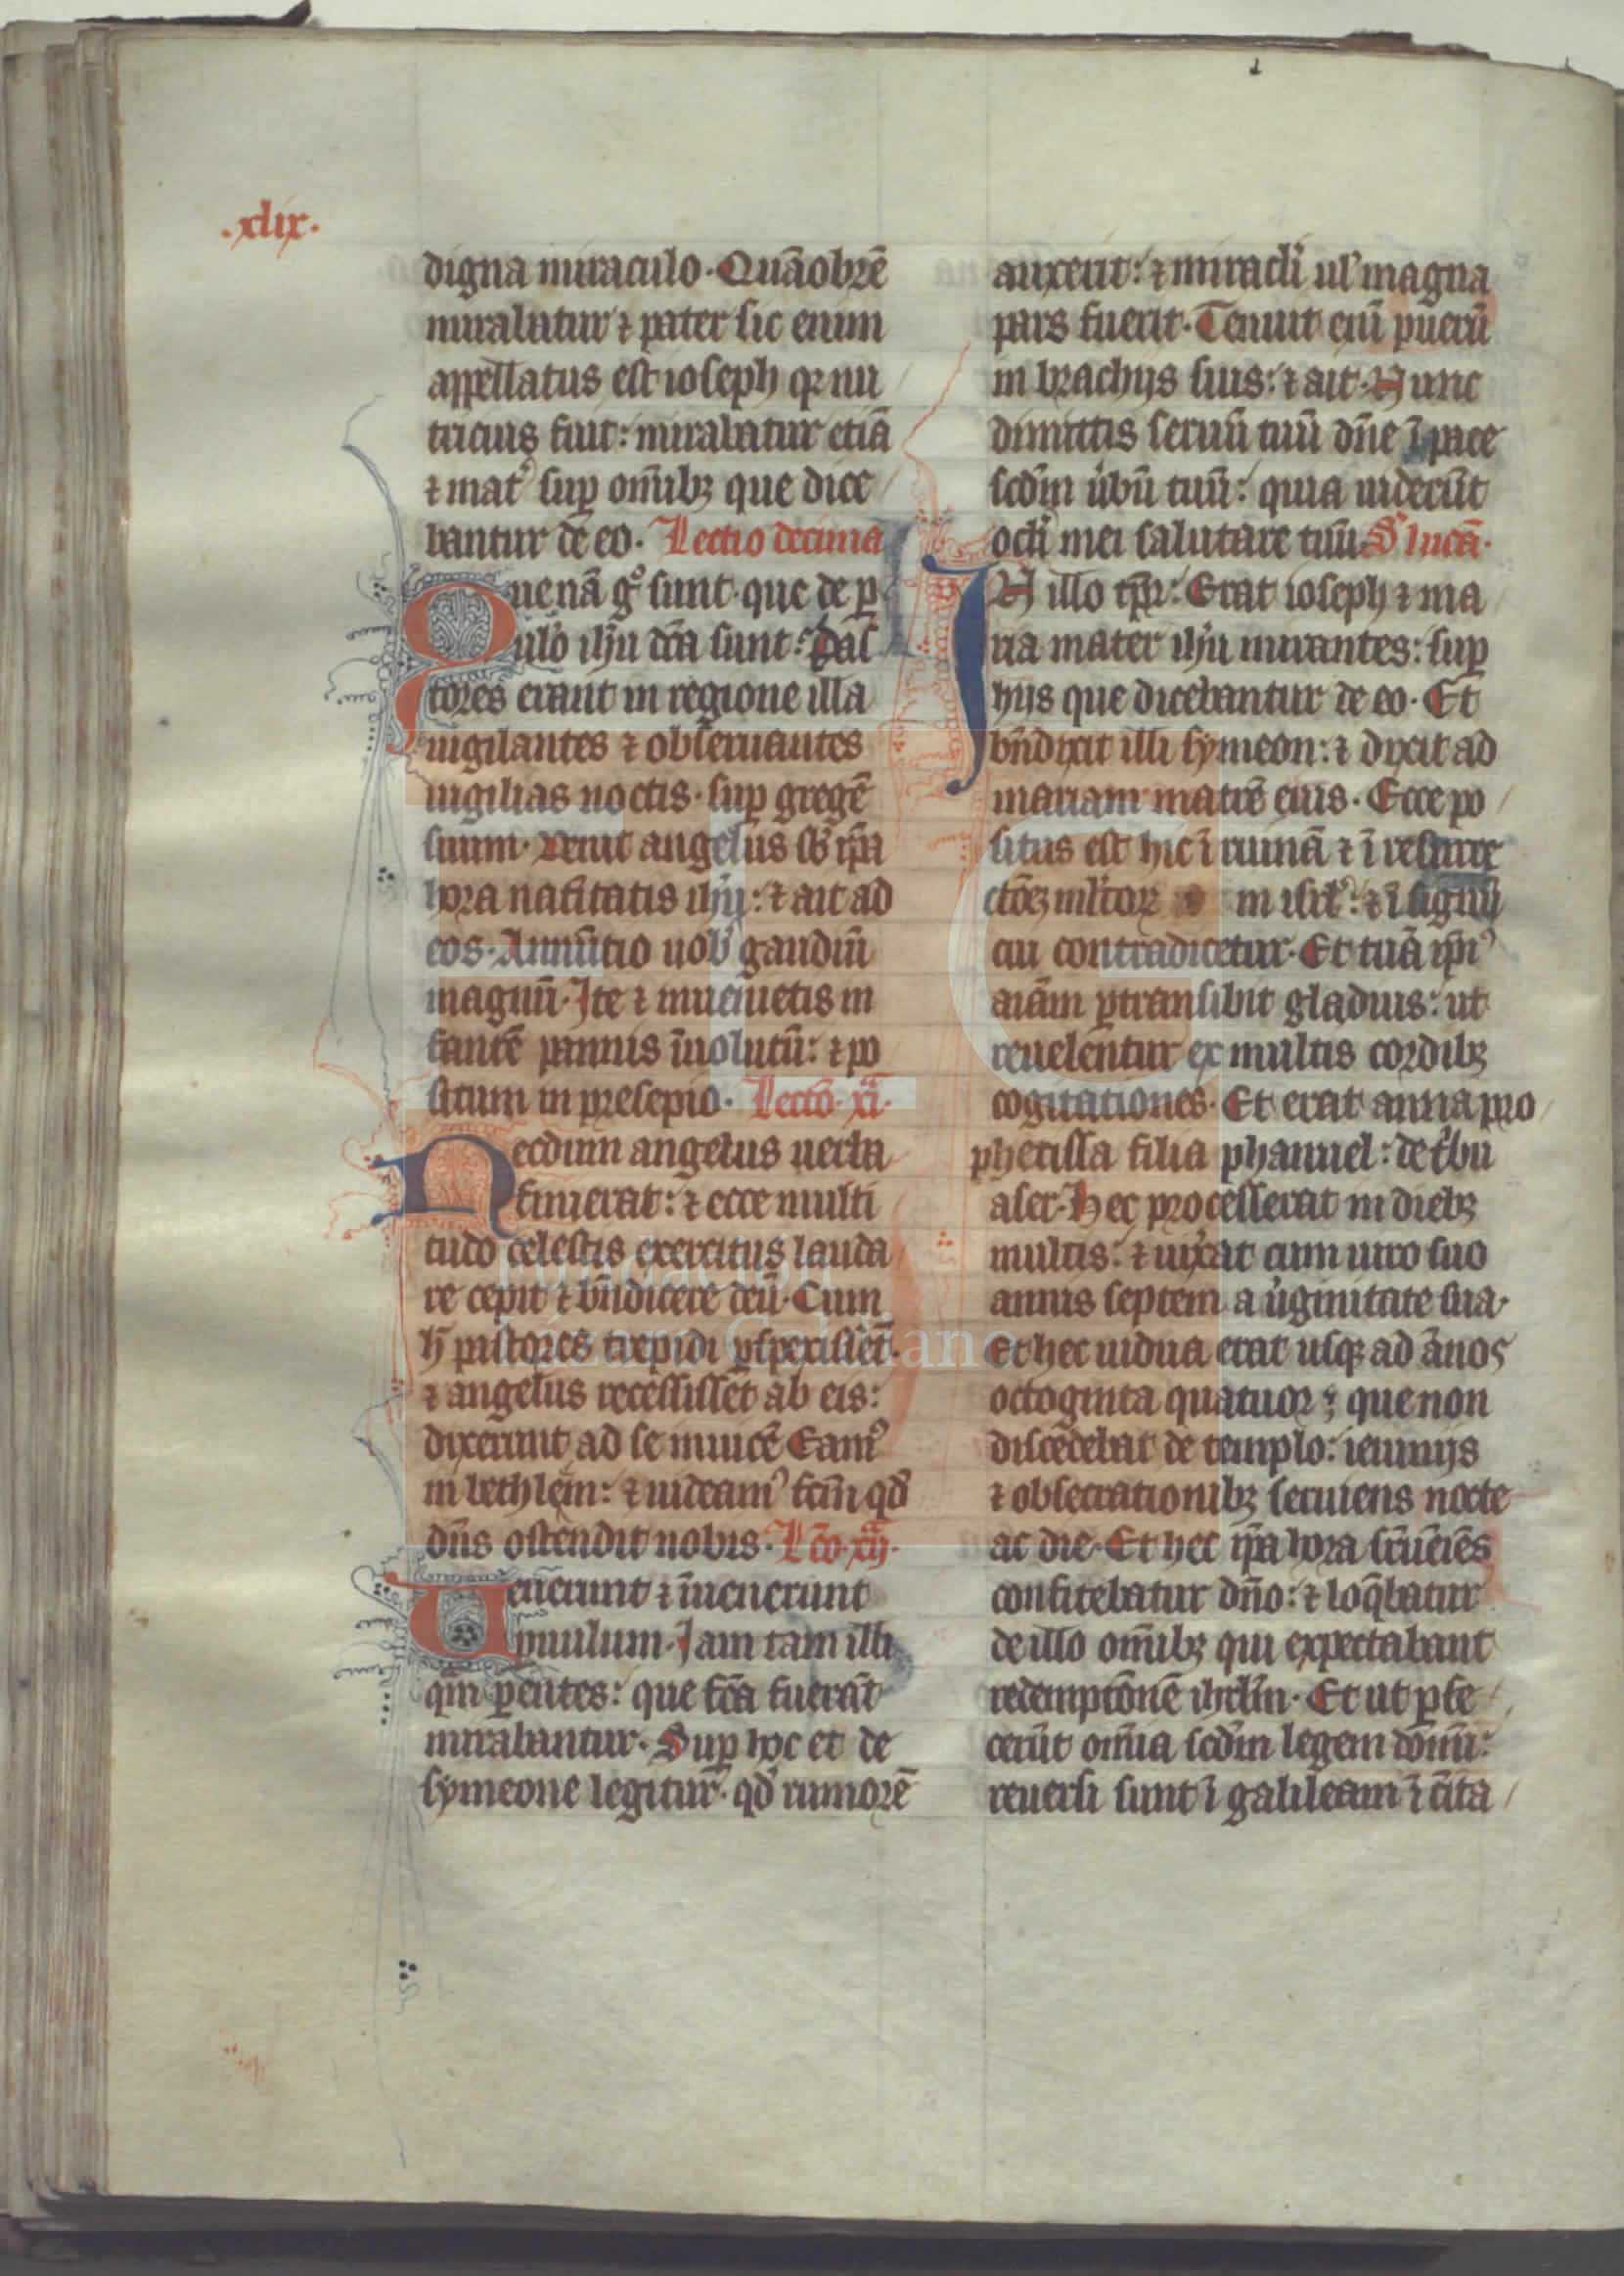 .xlix.
digna miraculo. Quāobrē
mirabatur ⁊ pater sic enim
appellatus est ioseph qꝛ nu
tricius fuit: mirabatur etiā
⁊ mat᷑ suꝑ om̄ibꝫ que dice
bantur de eo. Lectio decima
Quenā gͦ sunt que de p
ulo ihū dc̄a sunt: Pas
tores erant in regione illa
uigilantes ⁊ obseruantes
uigilias noctis suꝑ gregē
suum. Venit angelus sb̄ ip̄a
hora natiuitatis ihū: ⁊ ait ad
eos. Annūtio uob̄ gaudiū
magnū. Ite ⁊ inuenietis in
fantē pannis īuolutū: ⁊ po
situm in presepio. Lectō. xi.
Necdum angelus uerba
finierat: ⁊ ecce multi
tudo celestis exercitus lauda
re cepit ⁊ bn̄dicere deū. Cum
h̄ pastores trepidi ꝑspexissēt.
⁊ angelus recessisset ab eis:
dixerunt ad se inuicē Eamꝰ
in bethlem: ⁊ uideamꝰ fc̄m qd̄
dn̄s ostendit nobis. Lc̄o. xij.
Venerunt ⁊ īuenerunt
puulum. Iam tam illi
qm̄ ꝑentes: que fc̄a fuerāt
mirabantur. Suꝑ hoc et de
symeone legitur. qd̄ rumorē
auxerit: ⁊ miracli ul᷑ magna
pars fuerit. Tenuit eiū puerū
in brachijs suis: ⁊ ait. Nunc
dimittis seruū tuū dn̄e ī pace
scdm̄ ūbū tuū: quia uiderūt
ocli mei salutare tuū. S. lucā.
IN illo tp̄r: Erat ioseph ⁊ ma
ria mater ihū mirantes: suꝑ
hijs que dicebantur de eo. Et
bn̄dixit illi symeon: ⁊ dixit ad
mariam matrē eius. Ecce po
situs est hic ī ruinā ⁊ ī resurre
ctōeꝫ ml̄toꝝ in isrl̄: ⁊ ī signū
cui contradicetur. Et tuā ip̄iꝰ
aiām ꝑtransibit gladius: ut
reuelentur ex multis cordibꝫ
cogitationes. Et erat anna pro
phetissa filia phanuel: de tbu
aser. Hec processerat in diebꝫ
multis: ⁊ uix̄at cum uiro suo
annis septem a ūginitate sua.
Et hec uidua erat usqꝫ ad ānos
octoginta quatuor: que non
discedebat de templo: ieiunijs
⁊ obsecrationibꝫ seruiens nocte
ac die. Et hec ip̄a hora sr̄ueiēs
confitebatur dn̄o: ⁊ loq̄batur
de illo om̄ibꝫ qui expectabant
redemptōnē ihrl̄m. Et ut ꝑfe
cerūt om̄ia scdm̄ legem dōmi:
reuersi sunt ī galileam ī cīta